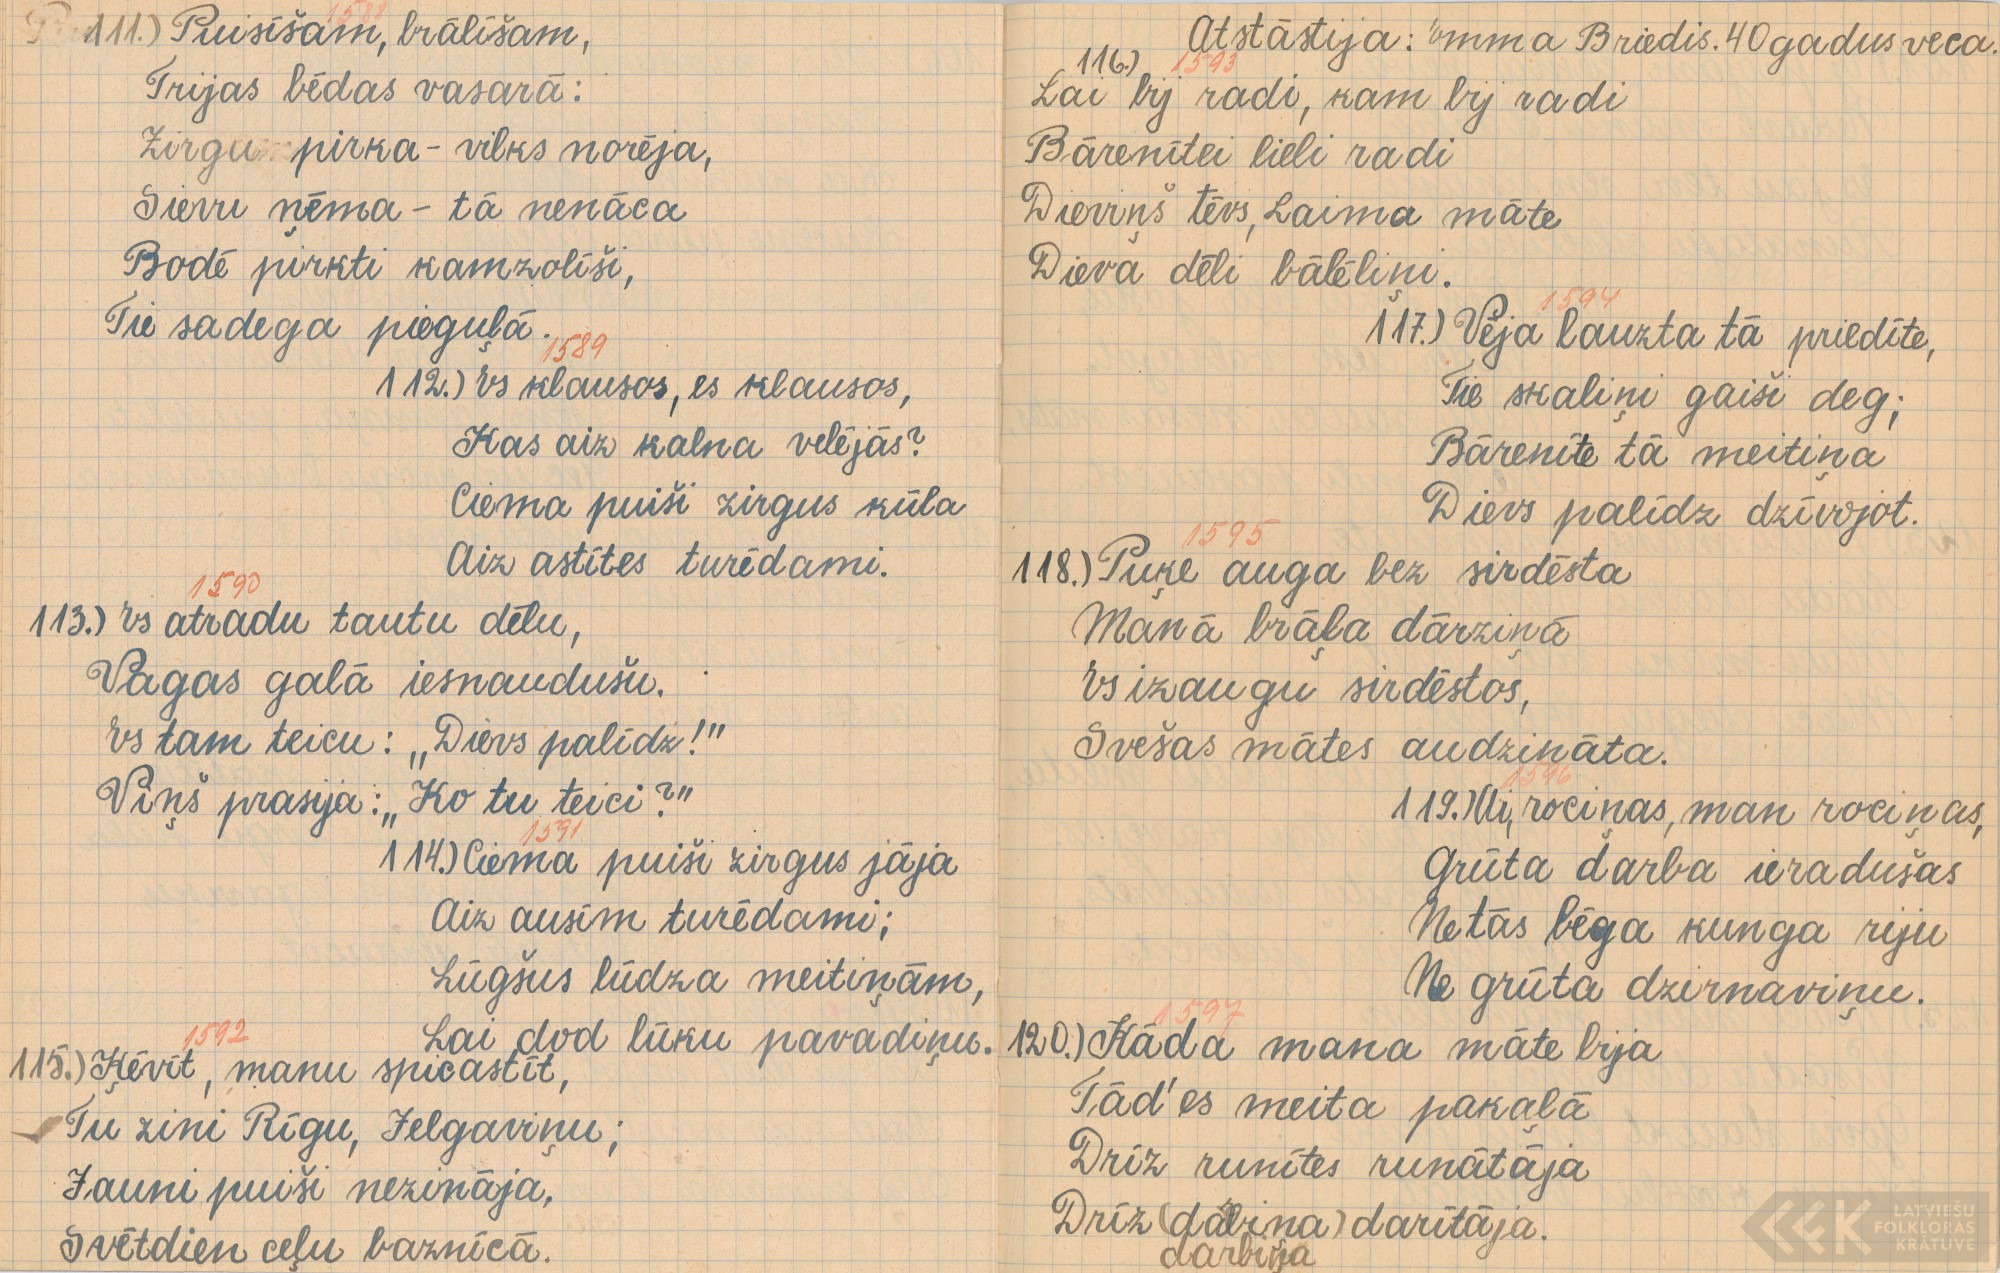 1588
111.) Puisīšam, brālīšam,
Trijas bēdas vasarā:
Zirgu pirka - vilks norēja,
Sievu ņēma - tā nenāca
Bodē pirkti kamzolīši,
Tie sadega pieguļā.
1589
112.) Es klausos, es klausos,
Kas aiz kalna velējās?
Ciema puiši zirgus kūla
Aiz astītes turēdami.
1590
113.) Es atradu tautu dēlu,
Vagas galā iesnaudušu.
Es tam teicu: „Dievs palīdz!"
Viņš prasija: „Ko tu teici?"
1591
114.) Ciema puiši zirgus jāja
Aiz ausīm turēdami;
Lūgšus lūdza meitiņām,
Lai dod lūku pavadiņu.
1592
115.) Ķēvīt, manu spicastīt,
Tu zini Rīgu, Jelgaviņu;
Jauni puiši nezināja,
Svētdien ceļu baznīcā.
Atstāstija: Emma Briedis. 40 gadus veca.
116.) 1593
Lai bij radi, kam bij radi
Bārenītei lieli radi
Dieviņš tēvs, Laima māte
Dieva dēli bālēliņi.
1594
117.) Vēja lauzta tā priedīte,
Tie skaliņi gaiši deg;
Bārenīte tā meitiņa
Dievs palīdz dzīvojot.
1595
118.) Puķe auga bez sirdēsta
Manā brāļa dārziņā
Es izaugu sirdēstos,
Svešas mātes audzināta.
1596
119.) Ai, rociņas, man rociņas,
Grūta darba ieradušas
Ne tās bēga kunga riju
Ne grūta dzirnaviņu.
1597
120.) Kāda mana māte bija
Tād' es meita pakaļā
Drīz runītes runātāja
Drīz (dālziņa) darītāja.
darbiņa
LATVIEŠU
FOLKLORAS
KRĀTUVE